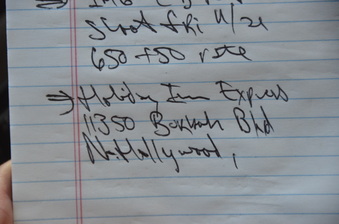 ⇒ 
Shoot Fri 11/21
650 + 50 rate
⇒ Holiday Inn Express
11350 Burbank Blvd
No. Hollywood,